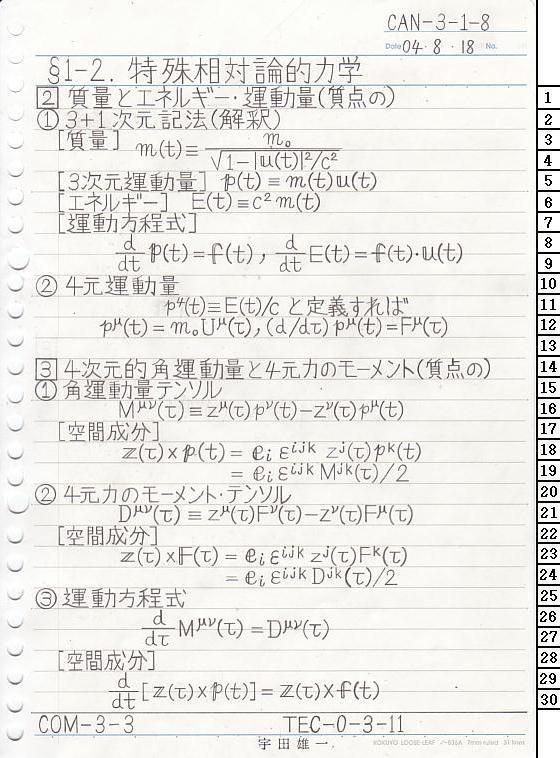 CAN-3-1-8
Date 04・8・18 No.
§1-2. 特殊相対論的力学
2 質量とエネルギー・運動量(質点の)
① 3+1次元記法(解釈)
[質量] m(t)≡ m₀/√(1-|𝕦(t)|²/c²)
[3次元運動量] 𝕡(t)≡m(t)𝕦(t)
[エネルギー] E(t)≡c²m(t)
[運動方程式]
d/dt 𝕡(t)=𝕗(t), d/dt E(t)=𝕗(t)・𝕦(t)
② 4元運動量
p⁴(t)≡E(t)/cと定義すれば
p^μ(t)=m₀U^μ(τ),(d/dτ)p^μ(t)=F^μ(τ)
3 4次元的角運動量と4元力のモーメント(質点の)
① 角運動量テンソル
M^μν(τ)≡z^μ(τ)p^ν(t)-z^ν(τ)p^μ(t)
[空間成分]
𝕫(τ)×𝕡(t)=𝕖ᵢε^ijk z^j(τ)p^k(t)
=𝕖ᵢε^ijk M^jk(τ)/2
② 4元力のモーメント・テンソル
D^μν(τ)≡z^μ(τ)F^ν(τ)-z^ν(τ)F^μ(τ)
[空間成分]
𝕫(τ)×𝔽(τ)=𝕖ᵢε^ijk z^j(τ)F^k(τ)
=𝕖ᵢε^ijk D^jk(τ)/2
③ 運動方程式
d/dτ M^μν(τ)=D^μν(τ)
[空間成分]
d/dt[𝕫(τ)×𝕡(t)]=𝕫(τ)×𝕗(t)
COM-3-3 TEC-0-3-11
宇田雄一
KOKUYO LOOSE-LEAF ノ-836A 7mm ruled 31 lines
1
2
3
4
5
6
7
8
9
10
11
12
13
14
15
16
17
18
19
20
21
22
23
24
25
26
27
28
29
30